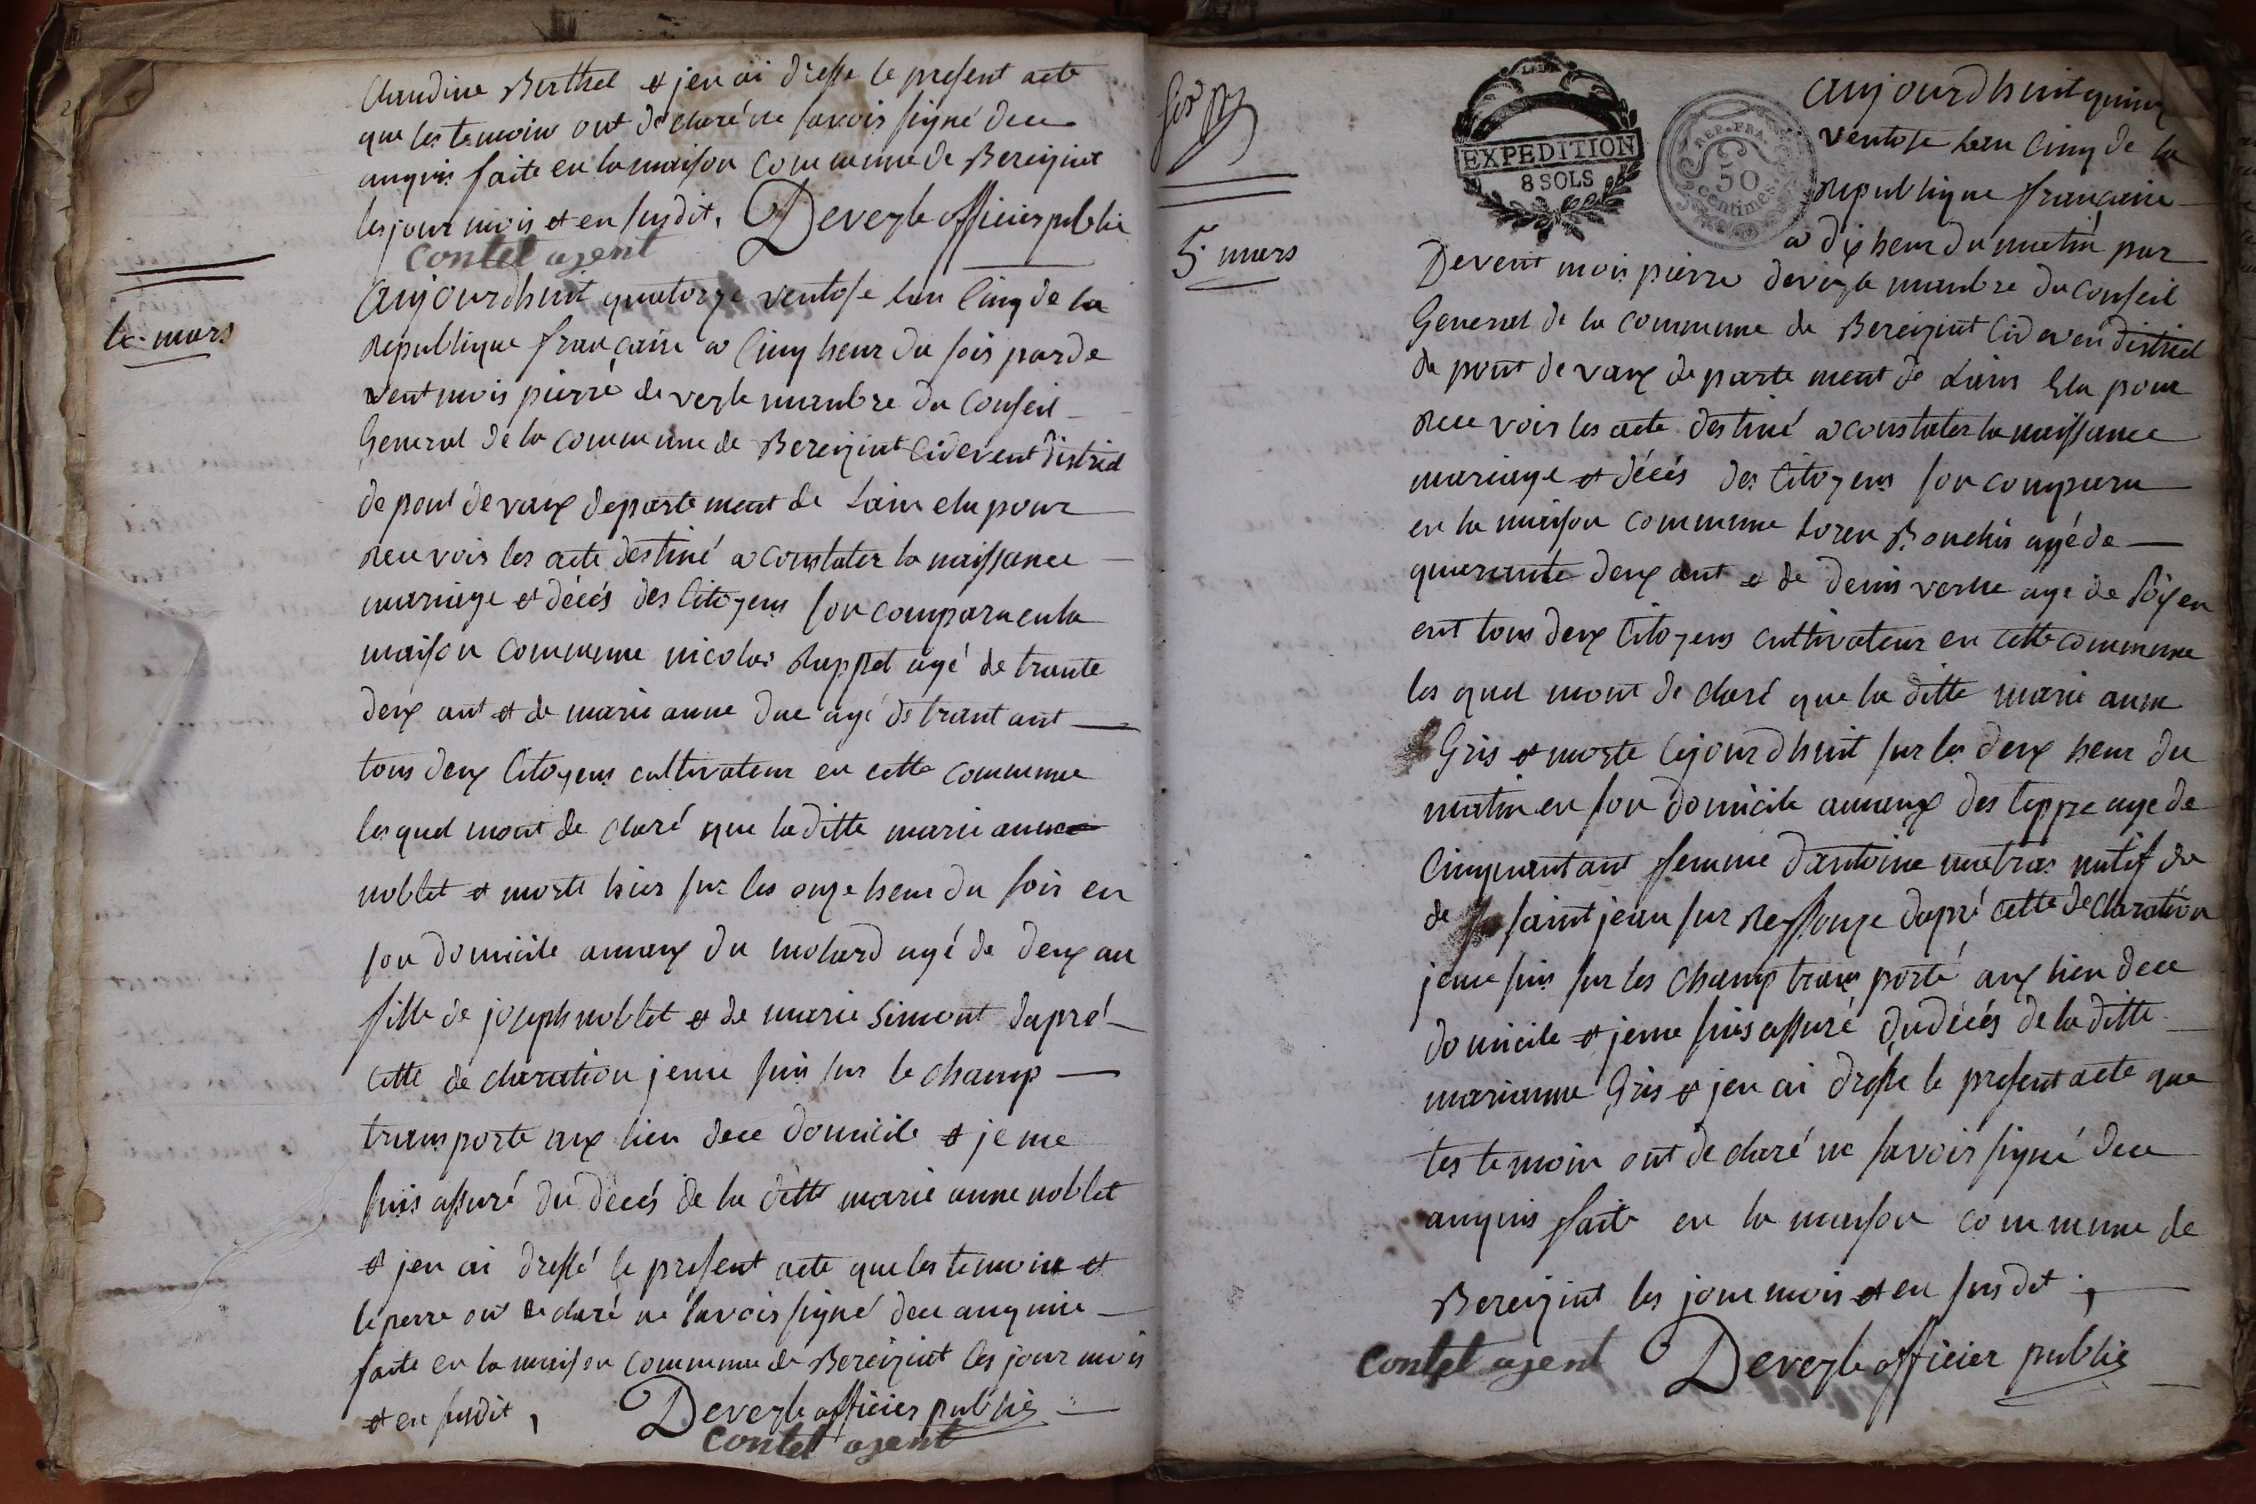 Claudine Berthet et jen ai dressé le present acte
que les temoin ont declaré ne savoir signé dece
anquis faite en la maison commune de Bereiziat
les jour mois et en susdit, Deveyle officier public
Contet agent
Aujourdhuit quatorze ventose lan Cinq de la
Republique française a Cinq heur du soir par de
vent mois pierre deveyle manbre du Conseil
General de la commune de Bereiziat Cidevent district
de pont de vaux departement de Lain elu pour
recevoir les acte destiné a constater la naissance
mariage et décés des Citoyens son comparu en la
maison commune nicolas Ruppet agé de trante
deux ant et de marie anne Duc agé de trant ant
tous deux Citoyens cultivateur en cette commune
les quel mont de claré que la ditte marie anne
noblet et morte hier sur les onze heur du soir en
son domicile aumeux du molard agé de deux an
fille de joseph noblet et de marie Simont dapré
cette de claration jeme suis sur le champ
transporte aux lieu dece domicile et je me
suis assuré du décés de la ditte marie anne noblet
et jen ai dressé le present acte que les temoin et
le perre on declaré ne savoir signé dece anquis
faite en la maison commune de Bereiziat les jour mois
et en susdit, Deveyle officier public
Contet agent
mars
5 mars
EXPEDITION
8 SOLS
REP. FRA.
50
Centimes
Aujourdhuit quinz
ventose lan Cinq de la
Republique française
a dix heur du matin par
Devent mois pierre deveyle manbre du Conseil
General de la commune de Bereiziat Cidevent district
de pont de vaux departement de Lain Elu pour
recevoir les acte destiné a constater la naissance
mariage et décés des Citoyens son comparu
en la maison commune Loren Bouchis agé de
quarante deux ant et de denis verne age de
ant tous deux Citoyens cultivateur en cette commune
les quel mont de claré que la ditte marie anne
Gris et morte cejourdhuit sur les deux heur du
matin en son domicile aumeux des teppe age de
Cinquant ant femme dantoine matras natif de
de saint jean sur Ressouze dapré cette declaration
jeme suis sur les champ trans porté aux lieu dece
domicile et jeme suis assuré du décés de la ditte
marianne Gris et jen ai dressé le present acte que
les temoin ont declaré ne savoir signé dece
anquis faite en la maison commune de
Bereiziat les jour mois et en susdit,
Contet agent Deveyle officier public